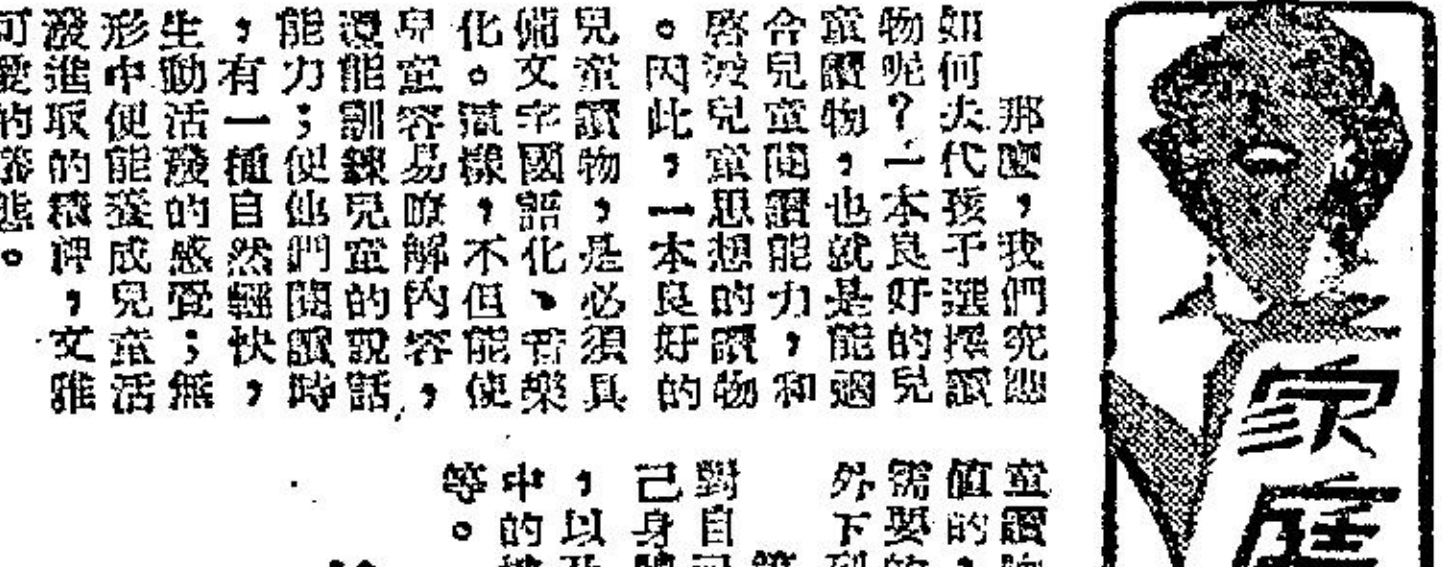 家庭
那麼，我們究應
如何去代孩子選擇讀
物呢？一本良好的兒
童讀物，也就是能適
合兒童閱讀能力，和
啓發兒童思想的讀物
。因此，一本良好的
兒童讀物，是必須具
備文字國語化、音樂
化。這樣，不但能使
兒童容易瞭解內容，
還能訓練兒童的說話
能力；使他們閱讀時
，有一種自然輕快，
生動活潑的感覺；無
形中便能養成兒童活
潑進取的精神，文雅
可愛的態。
童讀
值的，
需要的
外下列
對自
己身
，以及
中的
等。